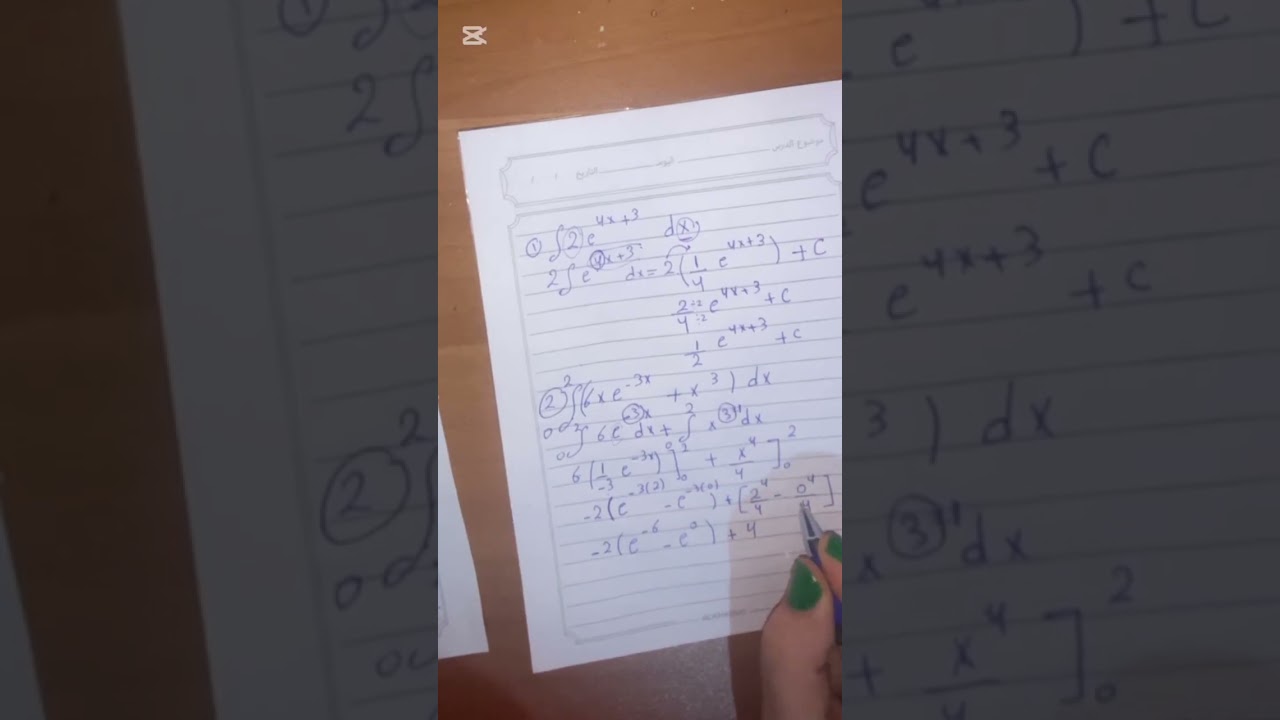 موضوع الدرس اليوم التاريخ / /
① ∫ 2 e^{4x+3} dx
2 ∫ e^{4x+3} dx = 2 ( 1/4 e^{4x+3} ) + C
2÷2/4÷2 e^{4x+3} + C
1/2 e^{4x+3} + C
② ∫_0^2 ( 6x e^{-3x} + x^3 ) dx
∫_0^2 6 e^{-3x} dx + ∫_0^2 x^3 dx
6 ( 1/-3 e^{-3x} ) ]_0^2 + x^4/4 ]_0^2
-2 ( e^{-3(2)} - e^{-3(0)} ) + [ 2^4/4 - 0^4/4 ]
-2 ( e^{-6} - e^0 ) + 4